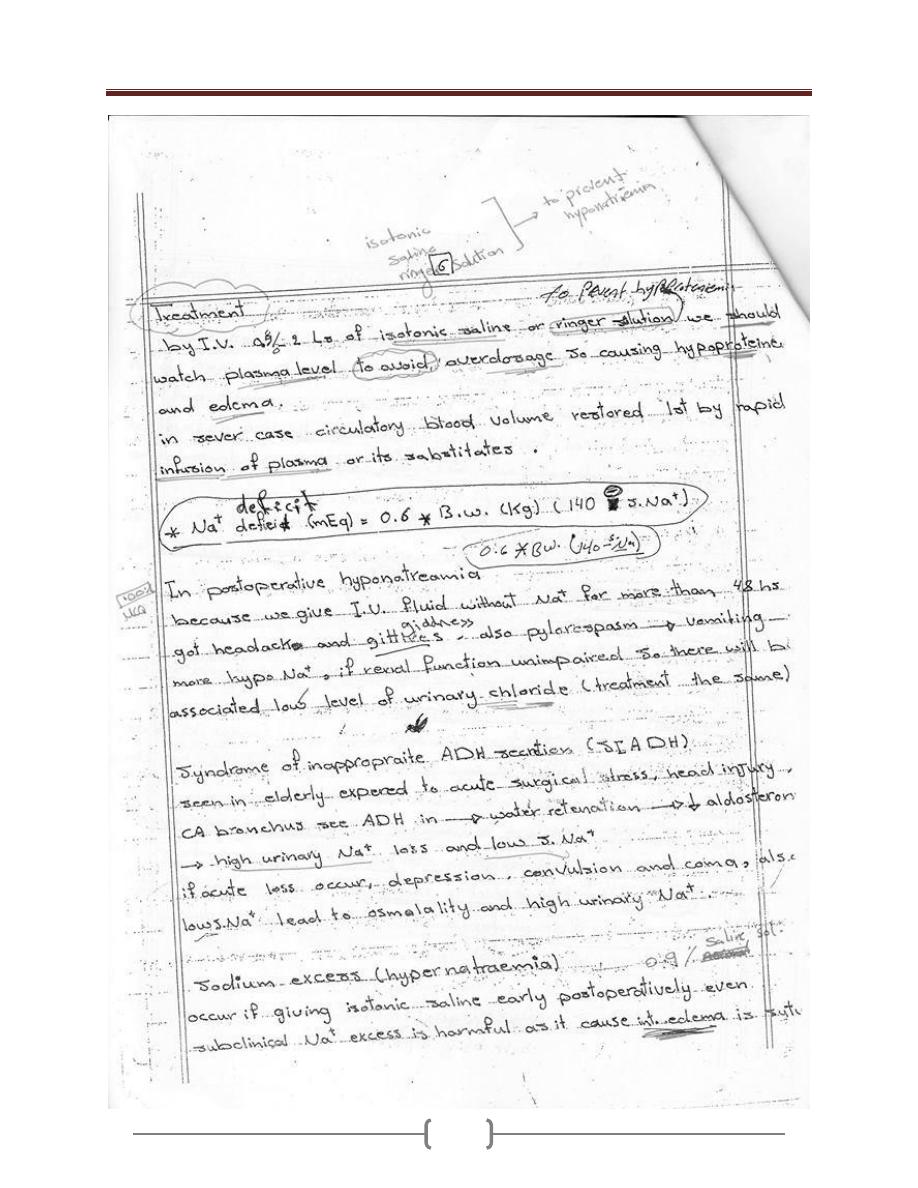 to prevent
hyponatriemia
isotonic
saline
ringer solution
6
to Pevent hypo
Treatment
by I.V. 2 Ls of isotonic saline or ringer slution we should
watch plasma level to avoid overdosage so causing hypoproteine
and edema.
in sever case circulatory blood volume restored 1st by rapid
infusion of plasma or its sabstitates .
deficit
* Na⁺ deficit (mEq) = 0.6 * B.w. (Kg) (140 - S.Na⁺)
0.6 * BW. (140 - S.Na)
100%
MCQ
In postoperative hyponatreamia
because we give I.U. fluid without Na⁺ for more than 48 hs
giddness
got headack and gittnes - also pylorespasm → vomiting —
more hypo Na⁺, if renal function unimpaired so there will b
associated low level of urinary chloride (treatment the same)
Syndrome of inappropraite ADH secretion (SIADH)
seen in elderly expered to acute surgical stress, head injury ,
CA branchus see ADH in → water retenation → ↓ aldosteron
→ high urinary Na⁺ loss and low S.Na⁺
if acute loss occur, depression, convulsion and coma, als
low s.Na⁺ lead to osmalality and high urinary Na⁺ .
0.9 % Saline sol.
Sodium excess (hypernatraemia)
occur if giving isotonic saline early postoperatively even
subclinical Na⁺ excess is harmful as it cause int. edema is sutu